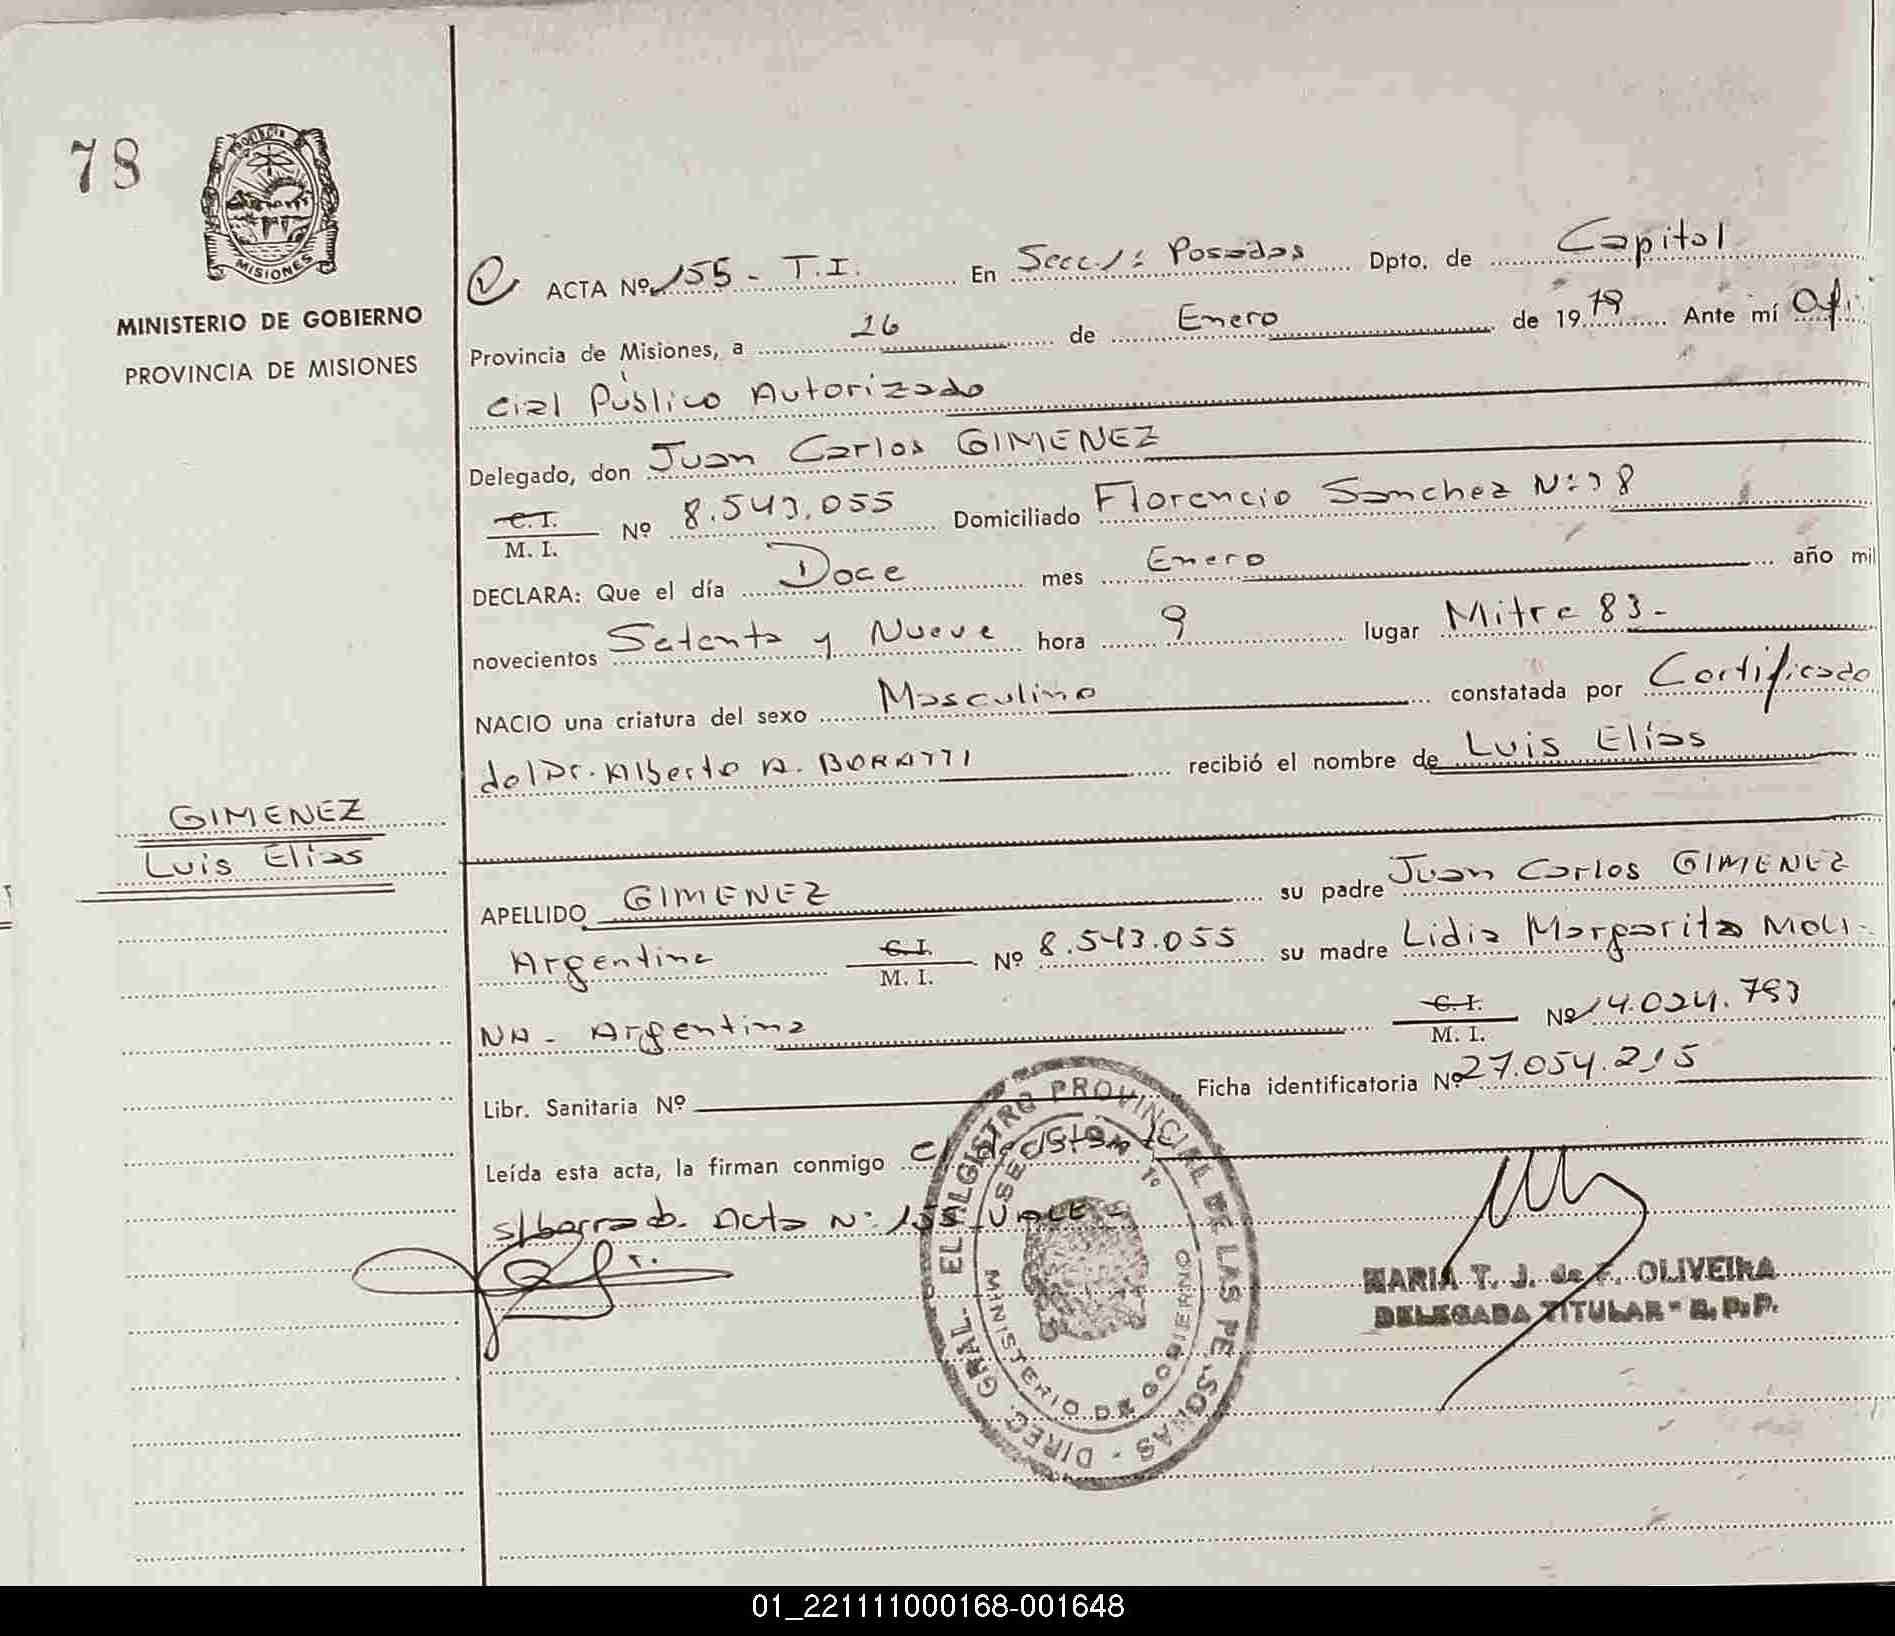 78
PROVINCIA
MISIONES
MINISTERIO DE GOBIERNO
PROVINCIA DE MISIONES
ACTA Nº 155 - T.I. En Secc. 1: Posadas Dpto. de Capital
Provincia de Misiones, a 26 de Enero de 1979 Ante mí Ofi
cial Público Autorizado
Delegado, don Juan Carlos GIMENEZ
C.I. M. I. Nº 8.543.055 Domiciliado Florencio Sanchez Nº 38
DECLARA: Que el día Doce mes Enero año mil
novecientos Setenta y Nueve hora 9 lugar Mitre 83-
NACIO una criatura del sexo Masculino constatada por Certificado
del Dr. Alberto A. BORATTI recibió el nombre de Luis Elías
GIMENEZ
Luis Elías
APELLIDO GIMENEZ su padre Juan Carlos GIMENEZ
Argentino C.I. M. I. Nº 8.543.055 su madre Lidia Margarita MOLI-
NA - Argentina C.I. M. I. Nº 14.024.793
Libr. Sanitaria Nº Ficha identificatoria Nº 27.054.215
Leída esta acta, la firman conmigo el
s/borrado. Acta Nº 155 VALE -
DIREC. GRAL. EL REGISTRO PROVINCIAL DE LAS PERSONAS
SEC 1º
MINISTERIO DE GOBIERNO
MARIA T. J. de F. OLIVEIRA
DELEGADA TITULAR - R. P. P.
01_221111000168-001648